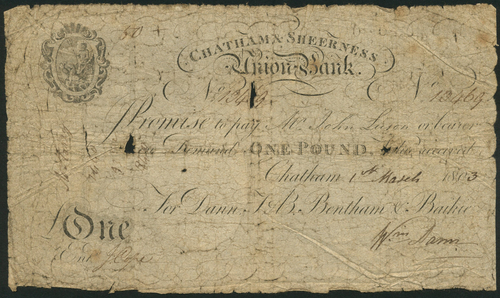 50
CHATHAM & SHEERNESS
Union Bank.
No 13469 No 13469
I Promise to pay Mr John Simon or bearer
on Demand ONE POUND, value received
Chatham 1st March 1803
For Dann, J. B. Bentham & Baikie
£One Wm Dann
Ent